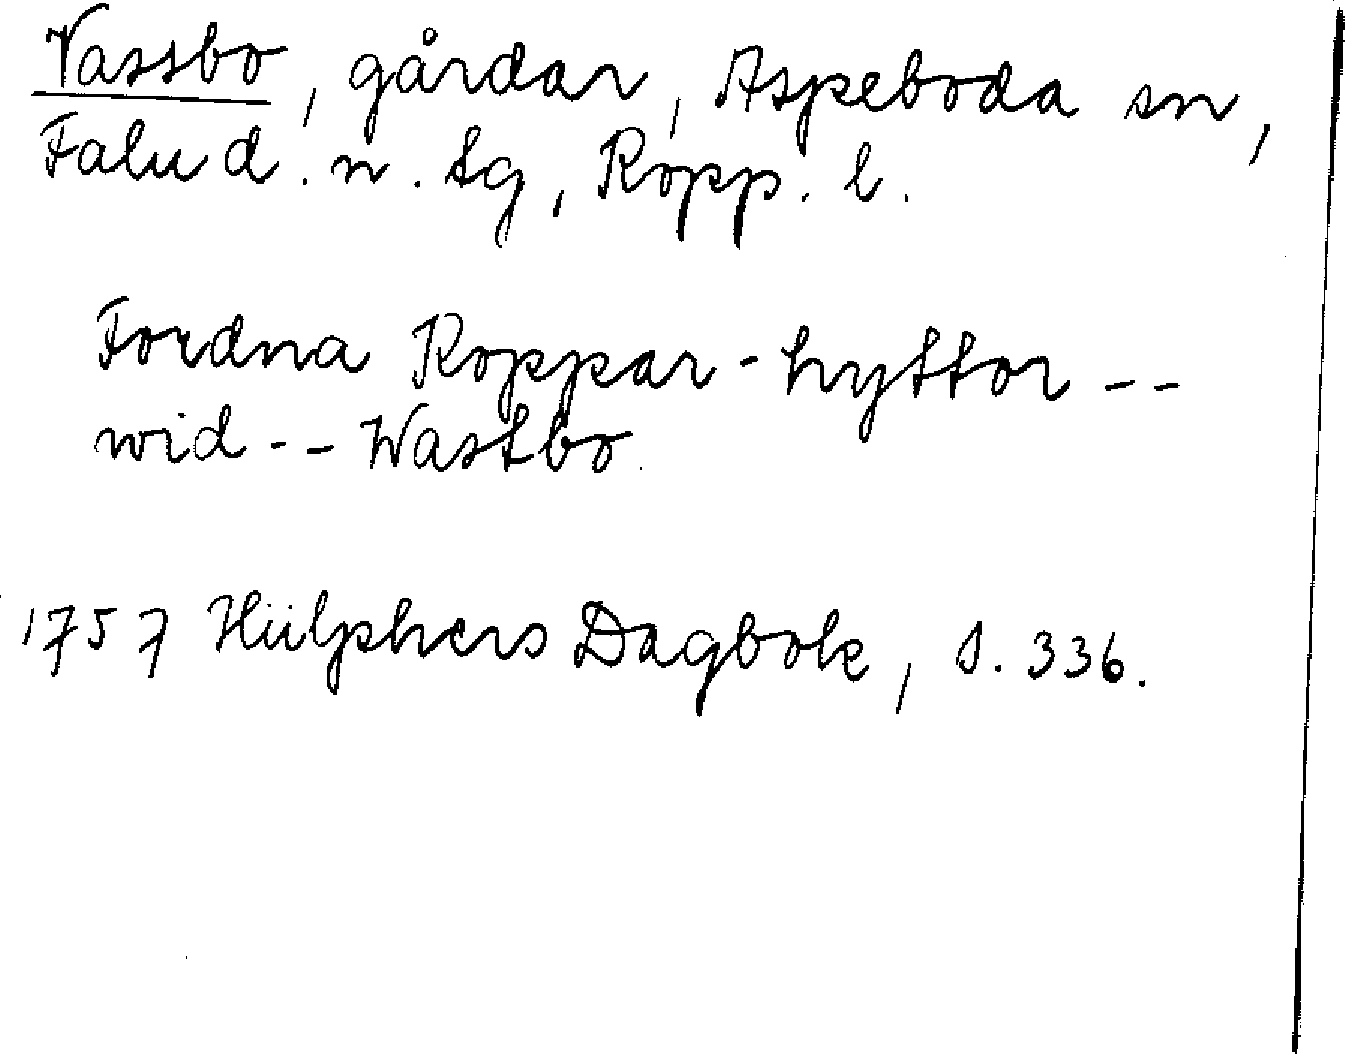 Vassbo, gårdar, Aspeboda sn,
Falu d. n. tg, Kopp. l.
Fordna Koppar-hyttor --
wid -- Wastbo.
1757 Hülphers Dagbok, s. 336.